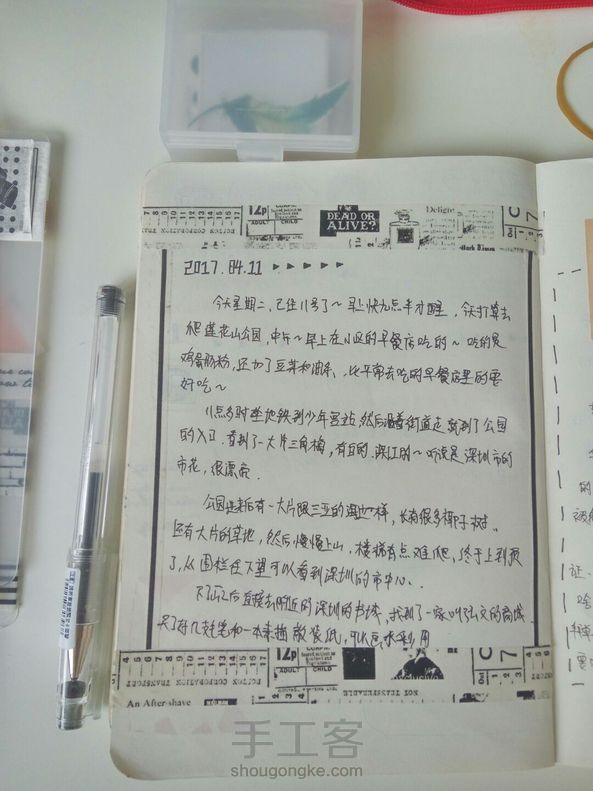 12p
ADULT
CHILD
DEAD OR
ALIVE?
Delight
2017.04.11
今天星期二,已经11号了~ 早上快九点半才醒,今天打算去
爬莲花山公园,中午~早上在小区的早餐店吃的~ 吃的是
鸡蛋肠粉,还加了豆浆和油条,比平常去吃的早餐店里的要
好吃~
11点多时坐地铁到少年宫站,然后沿着街道走就到了公园
的入口,看到了一大片三角梅,有白的、深红的~听说是深圳市的
市花,很漂亮。
公园进来后有一大片跟三亚的海边一样,长有很多椰子树。
还有大片的草地,然后慢慢上山,楼梯有点难爬,终于上到顶
了,从围栏往下望可以看到深圳的市中心。
下了山之后直接去附近的深圳的书城,找到了一家叫弘文的商城
买了好几支笔和一本
12p
NOT TRANSFERABLE
BOLTON CORPORATION TRANSPORT
An After-shave
手工客
shougongke.com
的